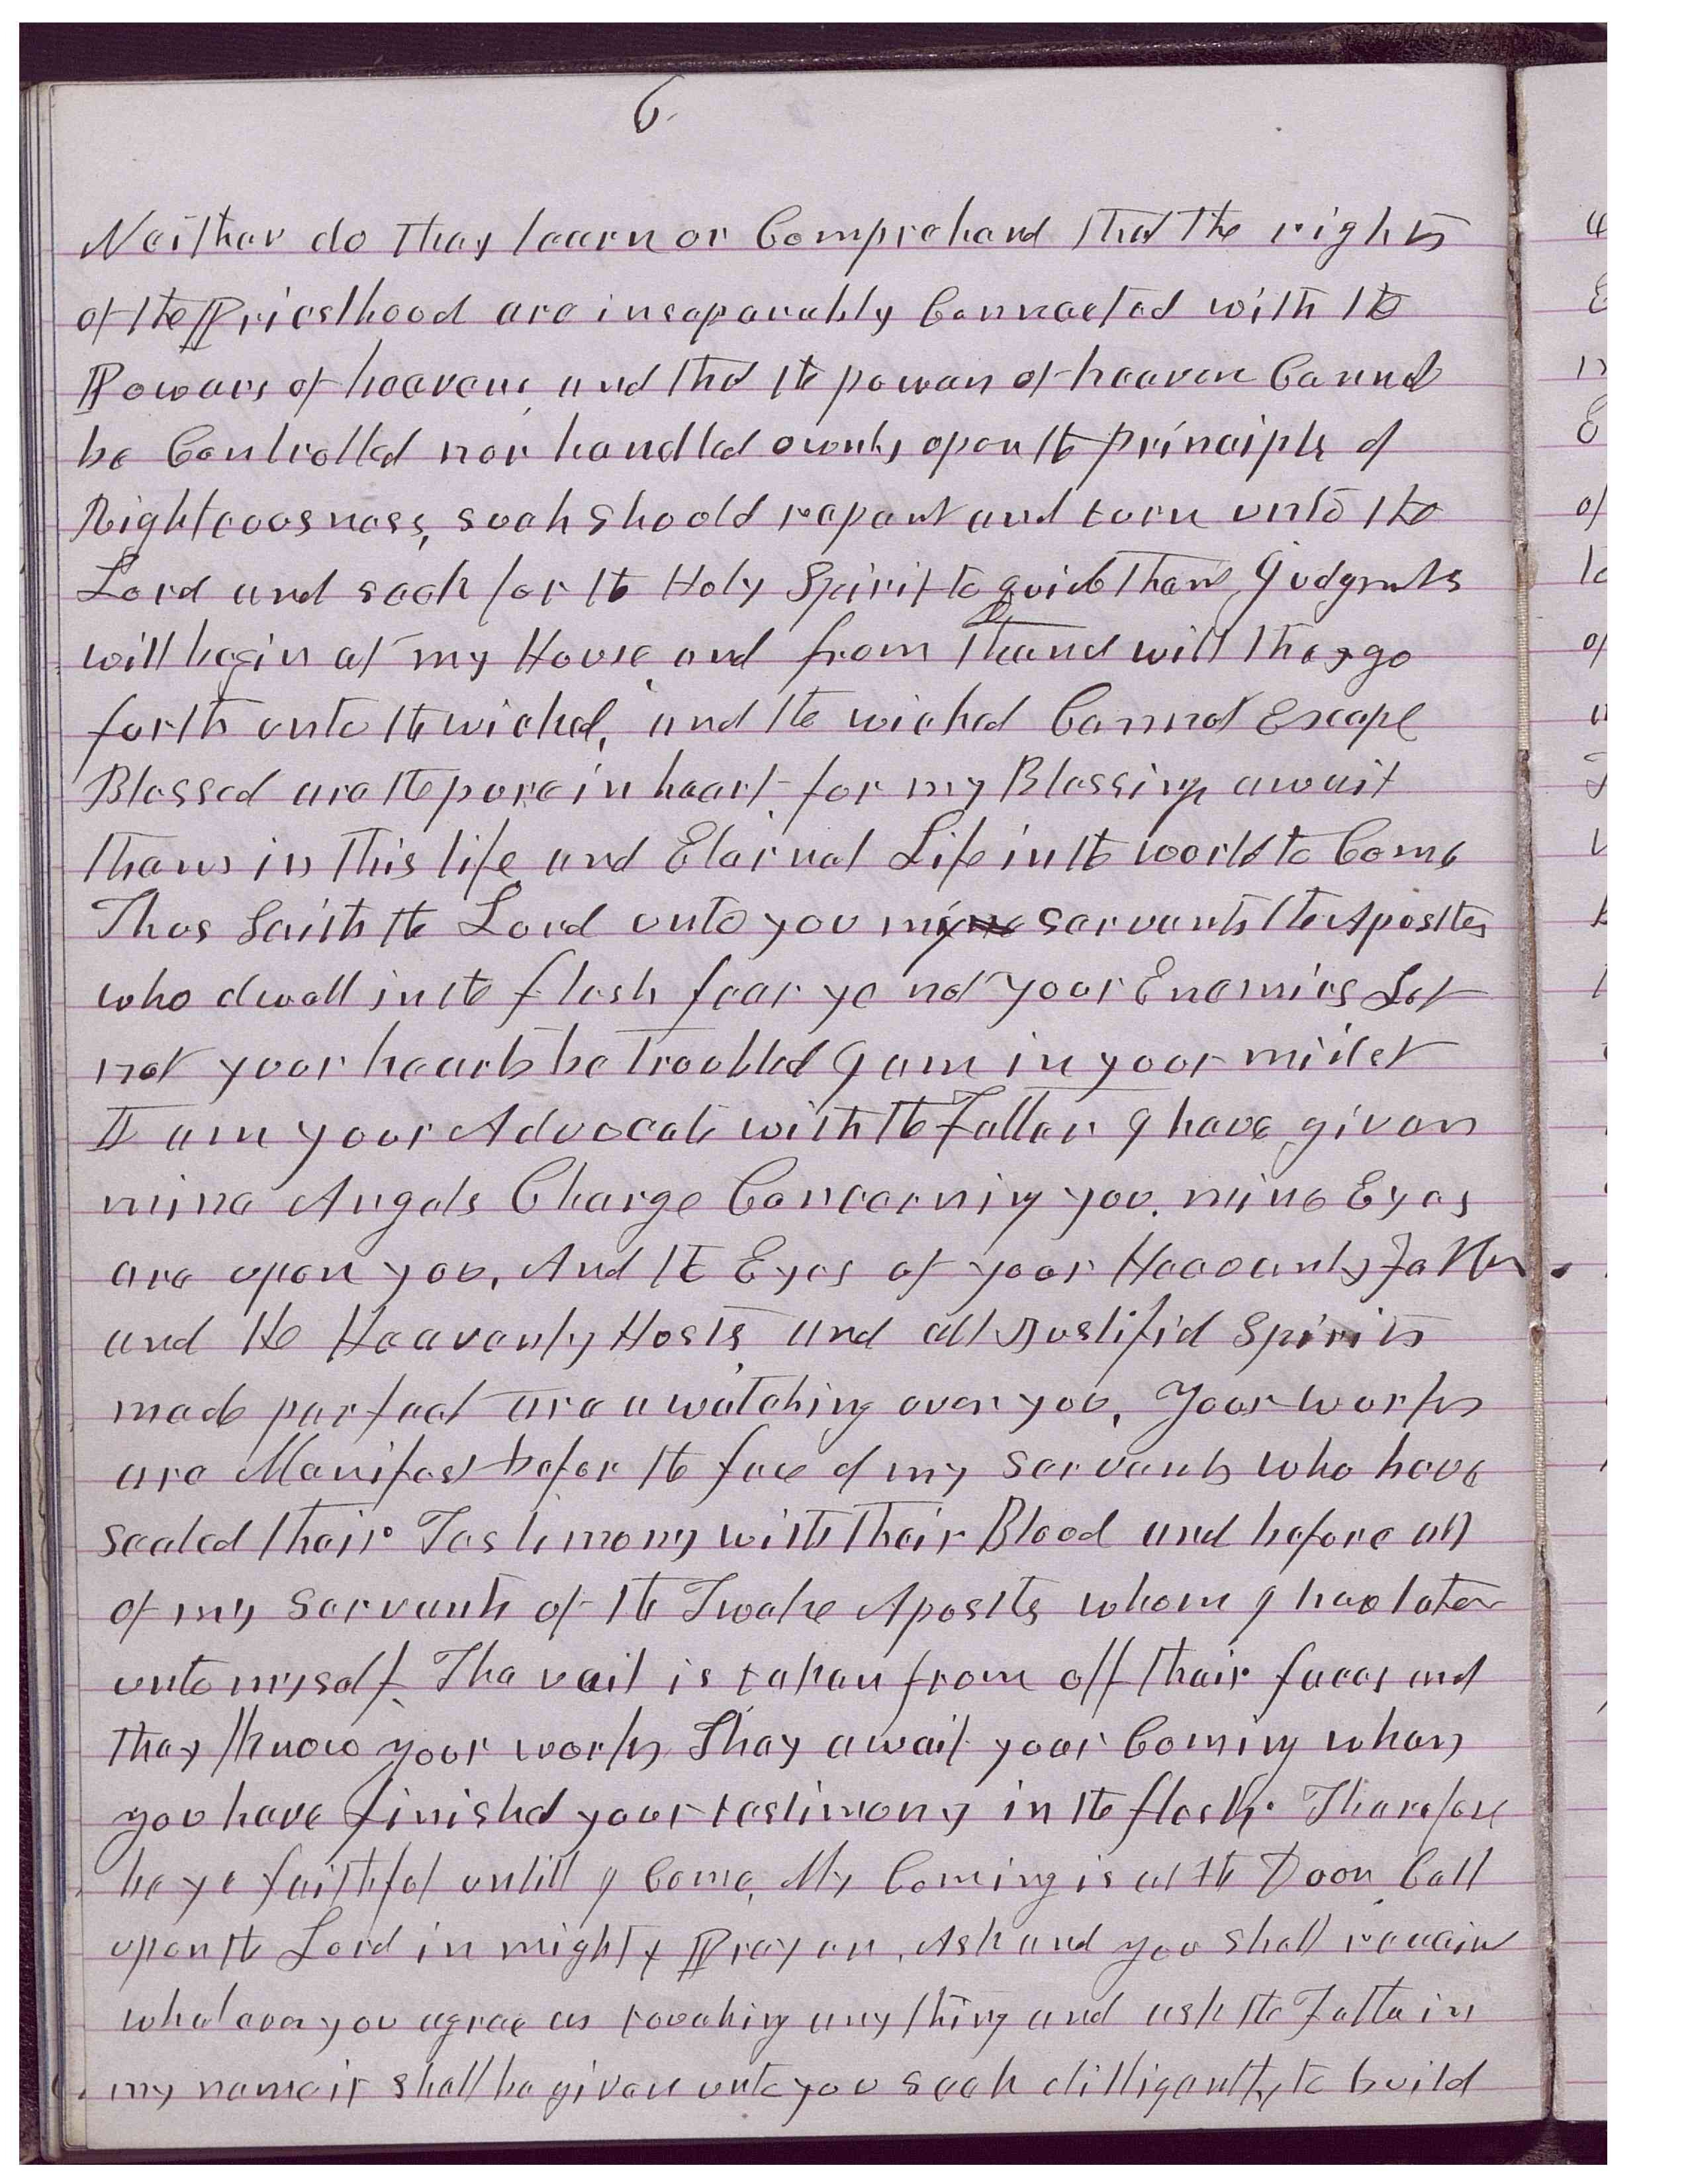 6.
Neither do they learn or Comprehend that the rights
of the Priesthood are inseparably Connected with the
Powers of heaven, and that the powers of heaven Cannot
be Controlled nor handled ownly upon the principle of
Righteousness, such should repent and turn unto the
Lord and seek for the Holy Spirit to guide them Judgments
will begin at my House, and from thence will they go
forth unto the wicked, and the wicked Cannot Escape
Blessed are the pure in heart for my Blessings await
them in this life and Eternal Life in the world to Come
Thus Saith the Lord unto you my servants the Apostles
who dwell in the flesh fear ye not your Enemies Let
not your hearts be troubled I am in your midst
I am your Advocate with the Father I have given
mine Angels Charge Concerning you. mine Eyes
are upon you, And the Eyes of your Heavenly Father.
and the Heavenly Hosts, and all Justified Spirits
made perfect are a watching over you, Your works
are Manifest before the face of my servants who have
sealed their Testimony with their Blood and before all
of my servants of the Twelve Apostles whom I have taken
unto myself. The vail is taken from off their faces and
they know your works. They await your Coming when
you have finished your testimony in the flesh. Therefore
be ye faithful untill I Come, My Coming is at the Door, Call
upon the Lord in mighty Prayer, Ask and you shall receive
whatever you agree as touching any thing and ask the Father in
my name it shall be given unto you seek dilligently to build